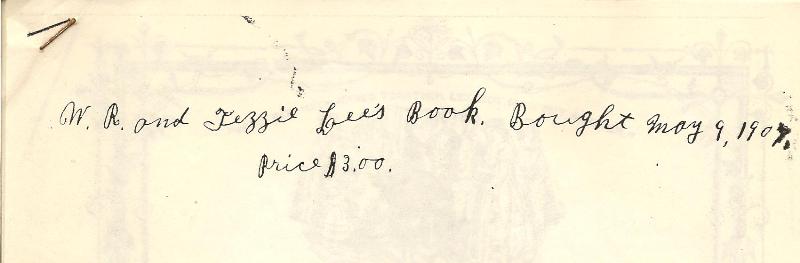 W. R. and Tezzie Lee's Book. Bought May 9, 1907.
Price $3.00.